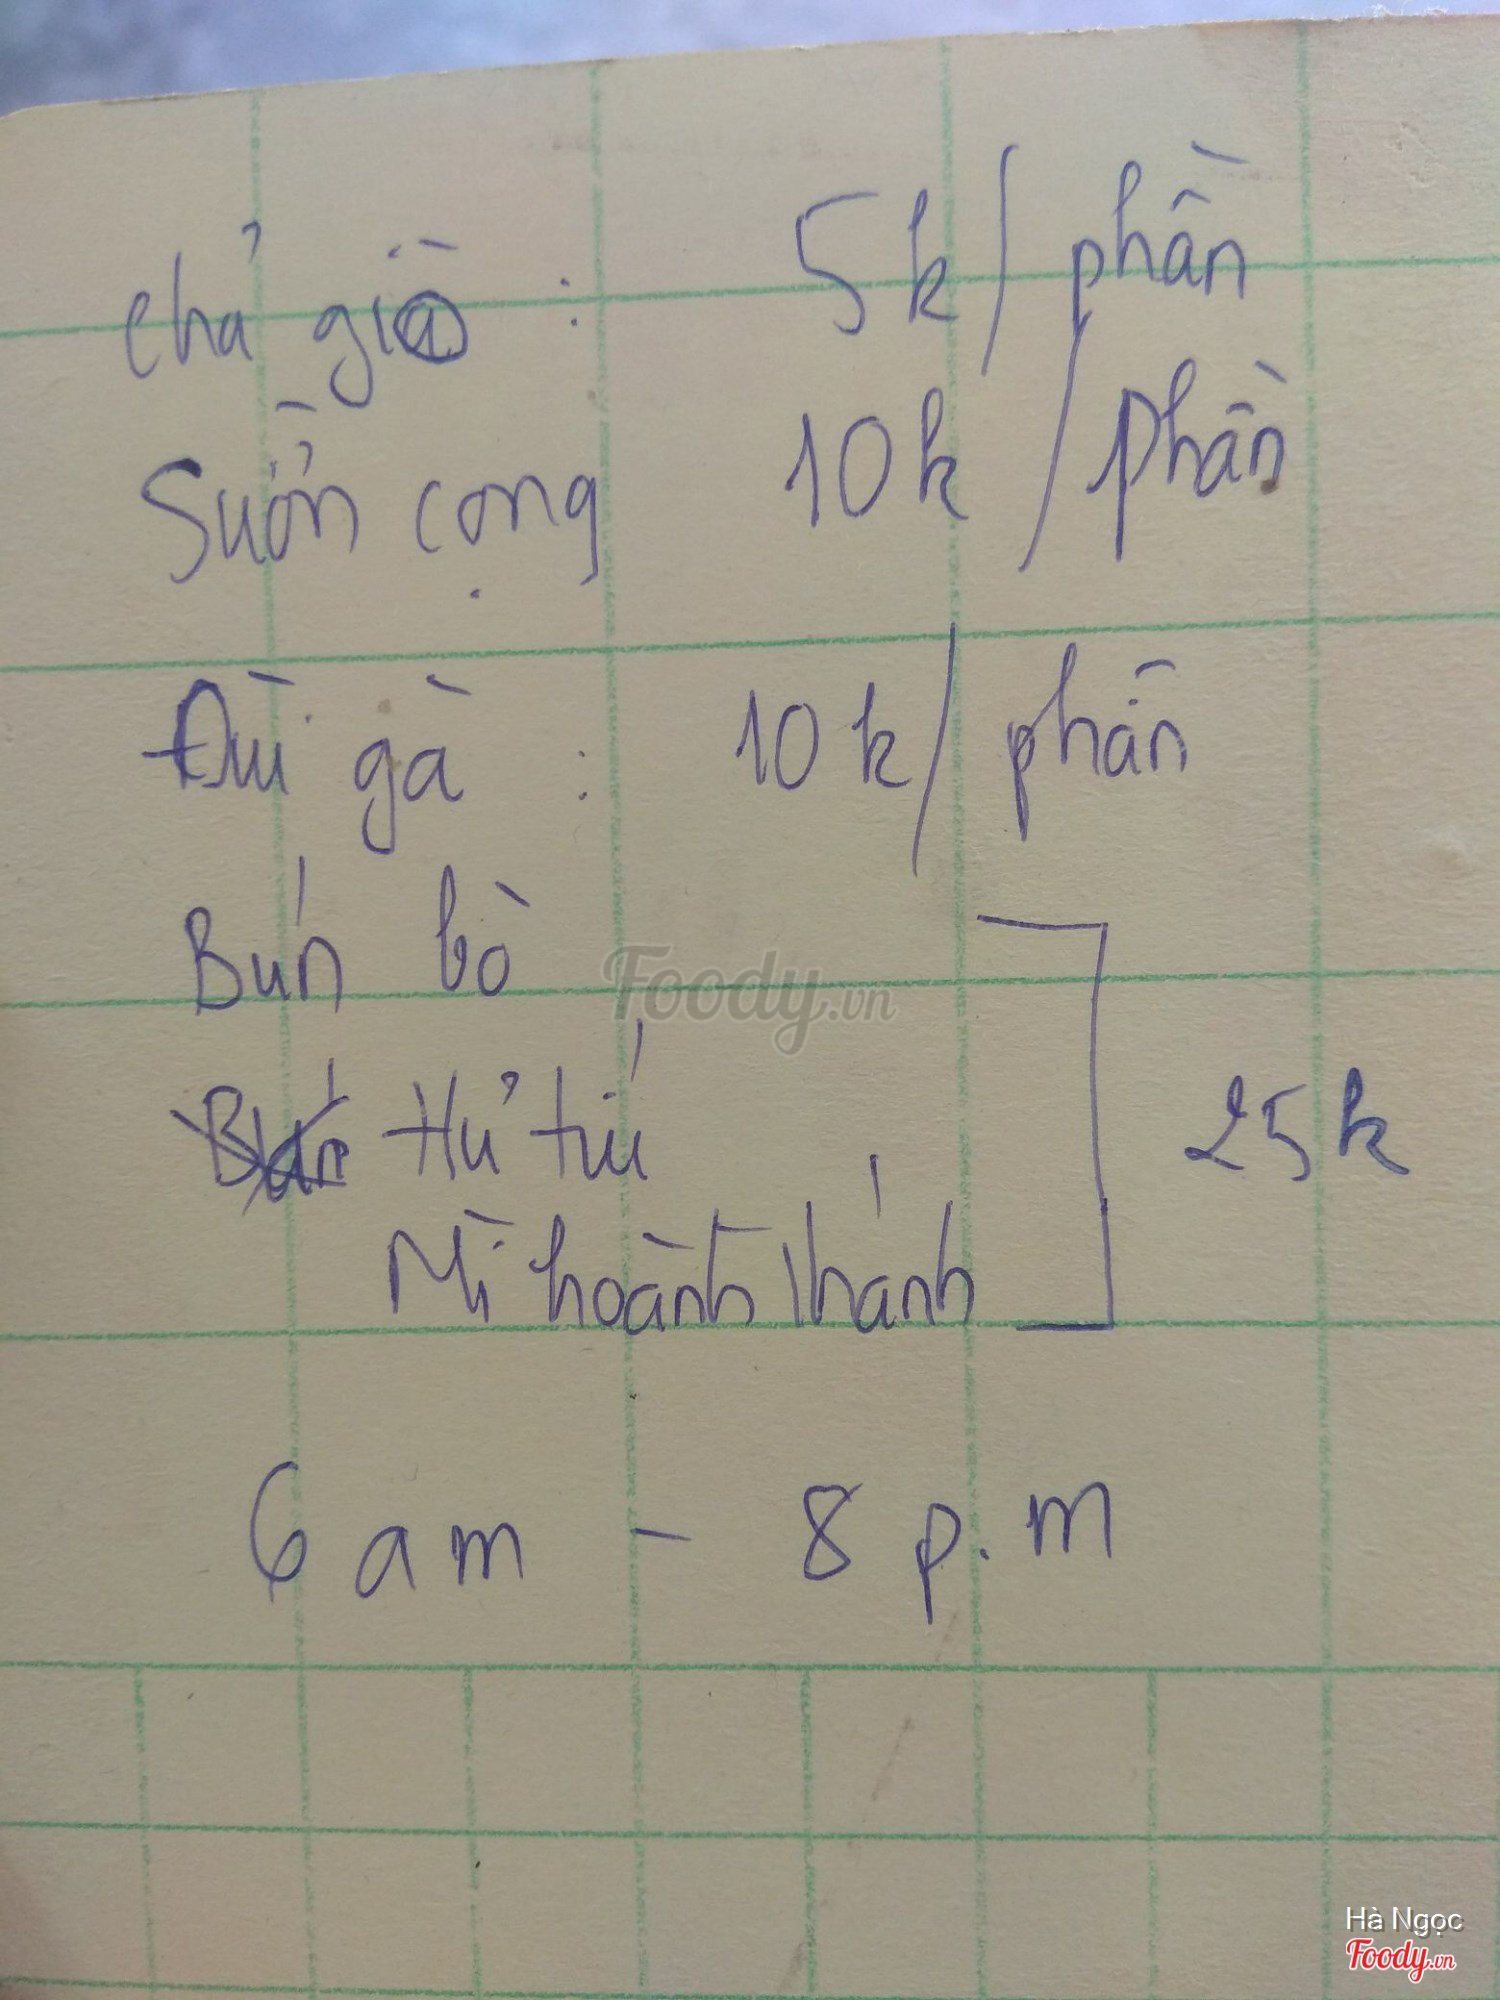 Chả giò : 5k/phần
Sườn cọng 10k/phần
Đùi gà : 10k/phần
Bún bò
Hủ tiú
Mì hoành thánh
25k
6 am - 8 p.m
Foody.vn
Hà Ngọc
Foody.vn